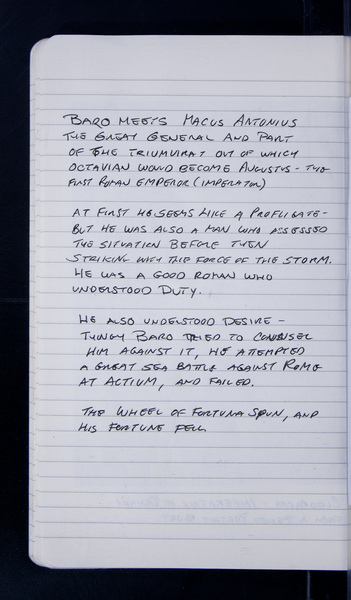 BARO MEETS MACUS ANTONIUS
THE GREAT GENERAL AND PART
OF THE TRIUMVIRAT OUT OF WHICH
OCTAVIAN WOULD BECOME AUGUSTUS - THE
FIRST ROMAN EMPEROR (IMPERATOR)
AT FIRST HE SEEMS LIKE A PROFLIGATE -
BUT HE WAS ALSO A MAN WHO ASSESSED
THE SITUATION BEFORE THEN
STRIKING WITH THE FORCE OF THE STORM.
HE WAS A GOOD ROMAN WHO
UNDERSTOOD DUTY.
HE ALSO UNDERSTOOD DESIRE -
THOUGH BARO TRIED TO COUNSEL
HIM AGAINST IT, HE ATEMPTED
A GREAT SEA BATTLE AGAINST ROME
AT ACTIUM, AND FAILED.
THE WHEEL OF FORTUNA SPUN, AND
HIS FORTUNE FELL